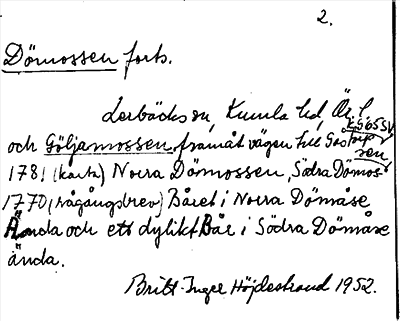 2.
Dömossen forts.
Lerbäcks sn, Kumla hd, Ör. l.
och Göljamossen, framåt vägen till
1781 (karta) Norra Dömossen, Södra Dömossen,
1770 (rågångsbrev) Båret i Norra Dömåse
Ända och ett dylikt Bår i Södra Dömåse
ända.
Britt-Inger Höjdestrand 1952.